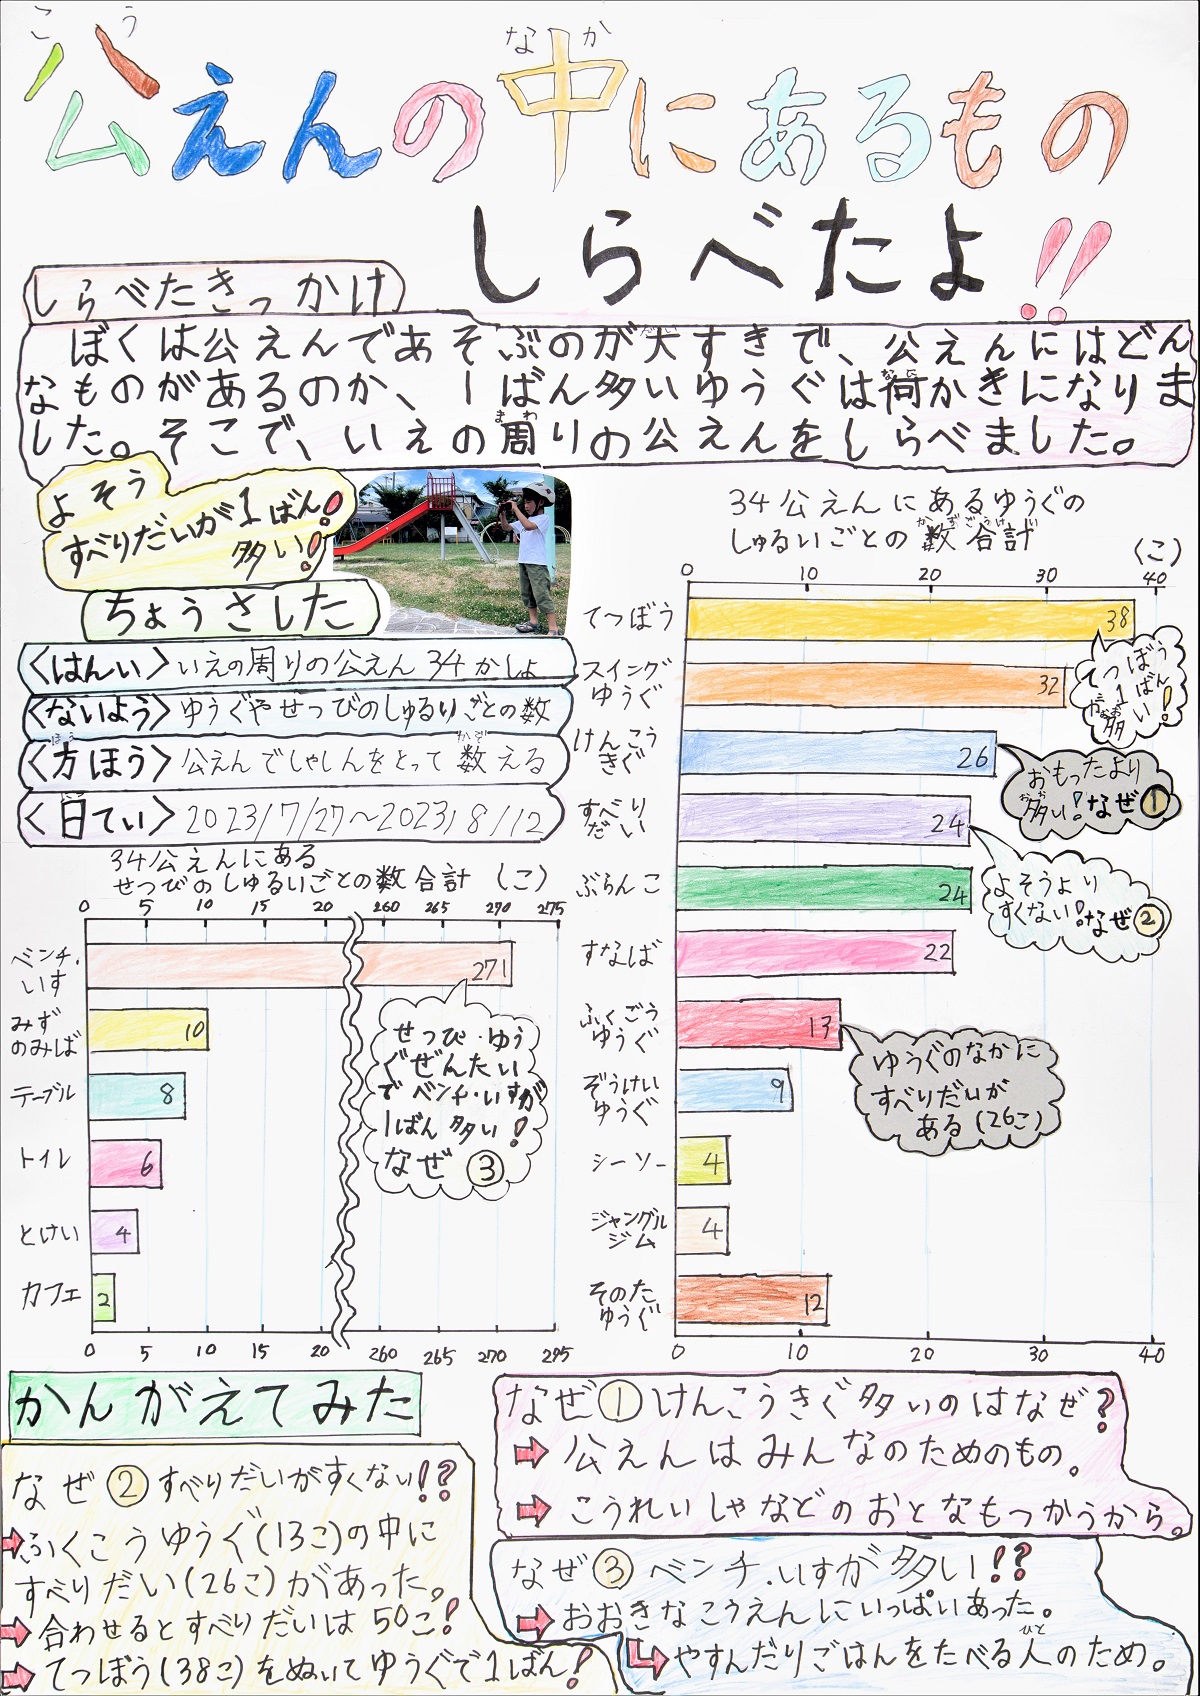 公えんの中にあるもの
こう
なか
しらべたよ!!
しらべたきっかけ
ぼくは公えんであそぶのが大すきで、公えんにはどん
なものがあるのか、1ばん多いゆうぐは何かきになりま
した。そこで、いえの周りの公えんをしらべました。
よそう
すべりだいが1ばん!
多い!
ちょうさした
<はんい>いえの周りの公えん34かしょ
<ないよう>ゆうぐやせつびのしゅるいごとの数
<方ほう>公えんでしゃしんをとって数える
<日てい>2023/7/27~2023/8/12
34公えんにある
せつびのしゅるいごとの数合計 (こ)
0 5 10 15 20 260 265 270 275
ベンチ・
いす
271
みず
のみば
10
テーブル
8
トイレ
6
とけい
4
カフェ
2
0 5 10 15 20 260 265 270 275
せつび・ゆう
ぐぜんたい
でベンチ・いすが
1ばん多い!
なぜ③
34公えんにあるゆうぐの
しゅるいごとの数合計
(こ)
0 10 20 30 40
てつぼう
38
スイング
ゆうぐ
32
けんこう
きぐ
26
すべり
だい
24
ぶらんこ
24
すなば
22
ふくごう
ゆうぐ
13
ぞうけい
ゆうぐ
9
シーソー
4
ジャングル
ジム
4
そのた
ゆうぐ
12
0 10 20 30 40
てつぼう
が1ばん
多い!
おもったより
多い!なぜ①
よそうより
すくない!なぜ②
ゆうぐのなかに
すべりだいが
ある(26こ)
かんがえてみた
なぜ①けんこうきぐ多いのはなぜ?
➡公えんはみんなのためのもの。
➡こうれいしゃなどのおとなもつかうから。
なぜ②すべりだいがすくない!?
➡ふくごうゆうぐ(13こ)の中に
すべりだい(26こ)があった。
➡合わせるとすべりだいは50こ!
➡てつぼう(38こ)をぬいてゆうぐで1ばん!
なぜ③ベンチ・いすが多い!?
➡おおきなこうえんにいっぱいあった。
➡やすんだりごはんをたべる人のため。